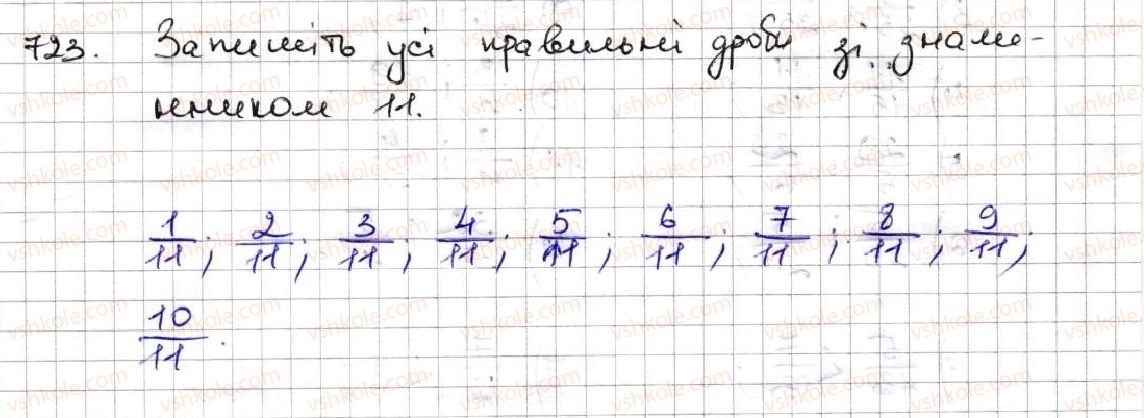 723. Запишіть усі правильні дроби зі знаме-
нником 11.
1/11; 2/11; 3/11; 4/11; 5/11; 6/11; 7/11; 8/11; 9/11;
10/11.